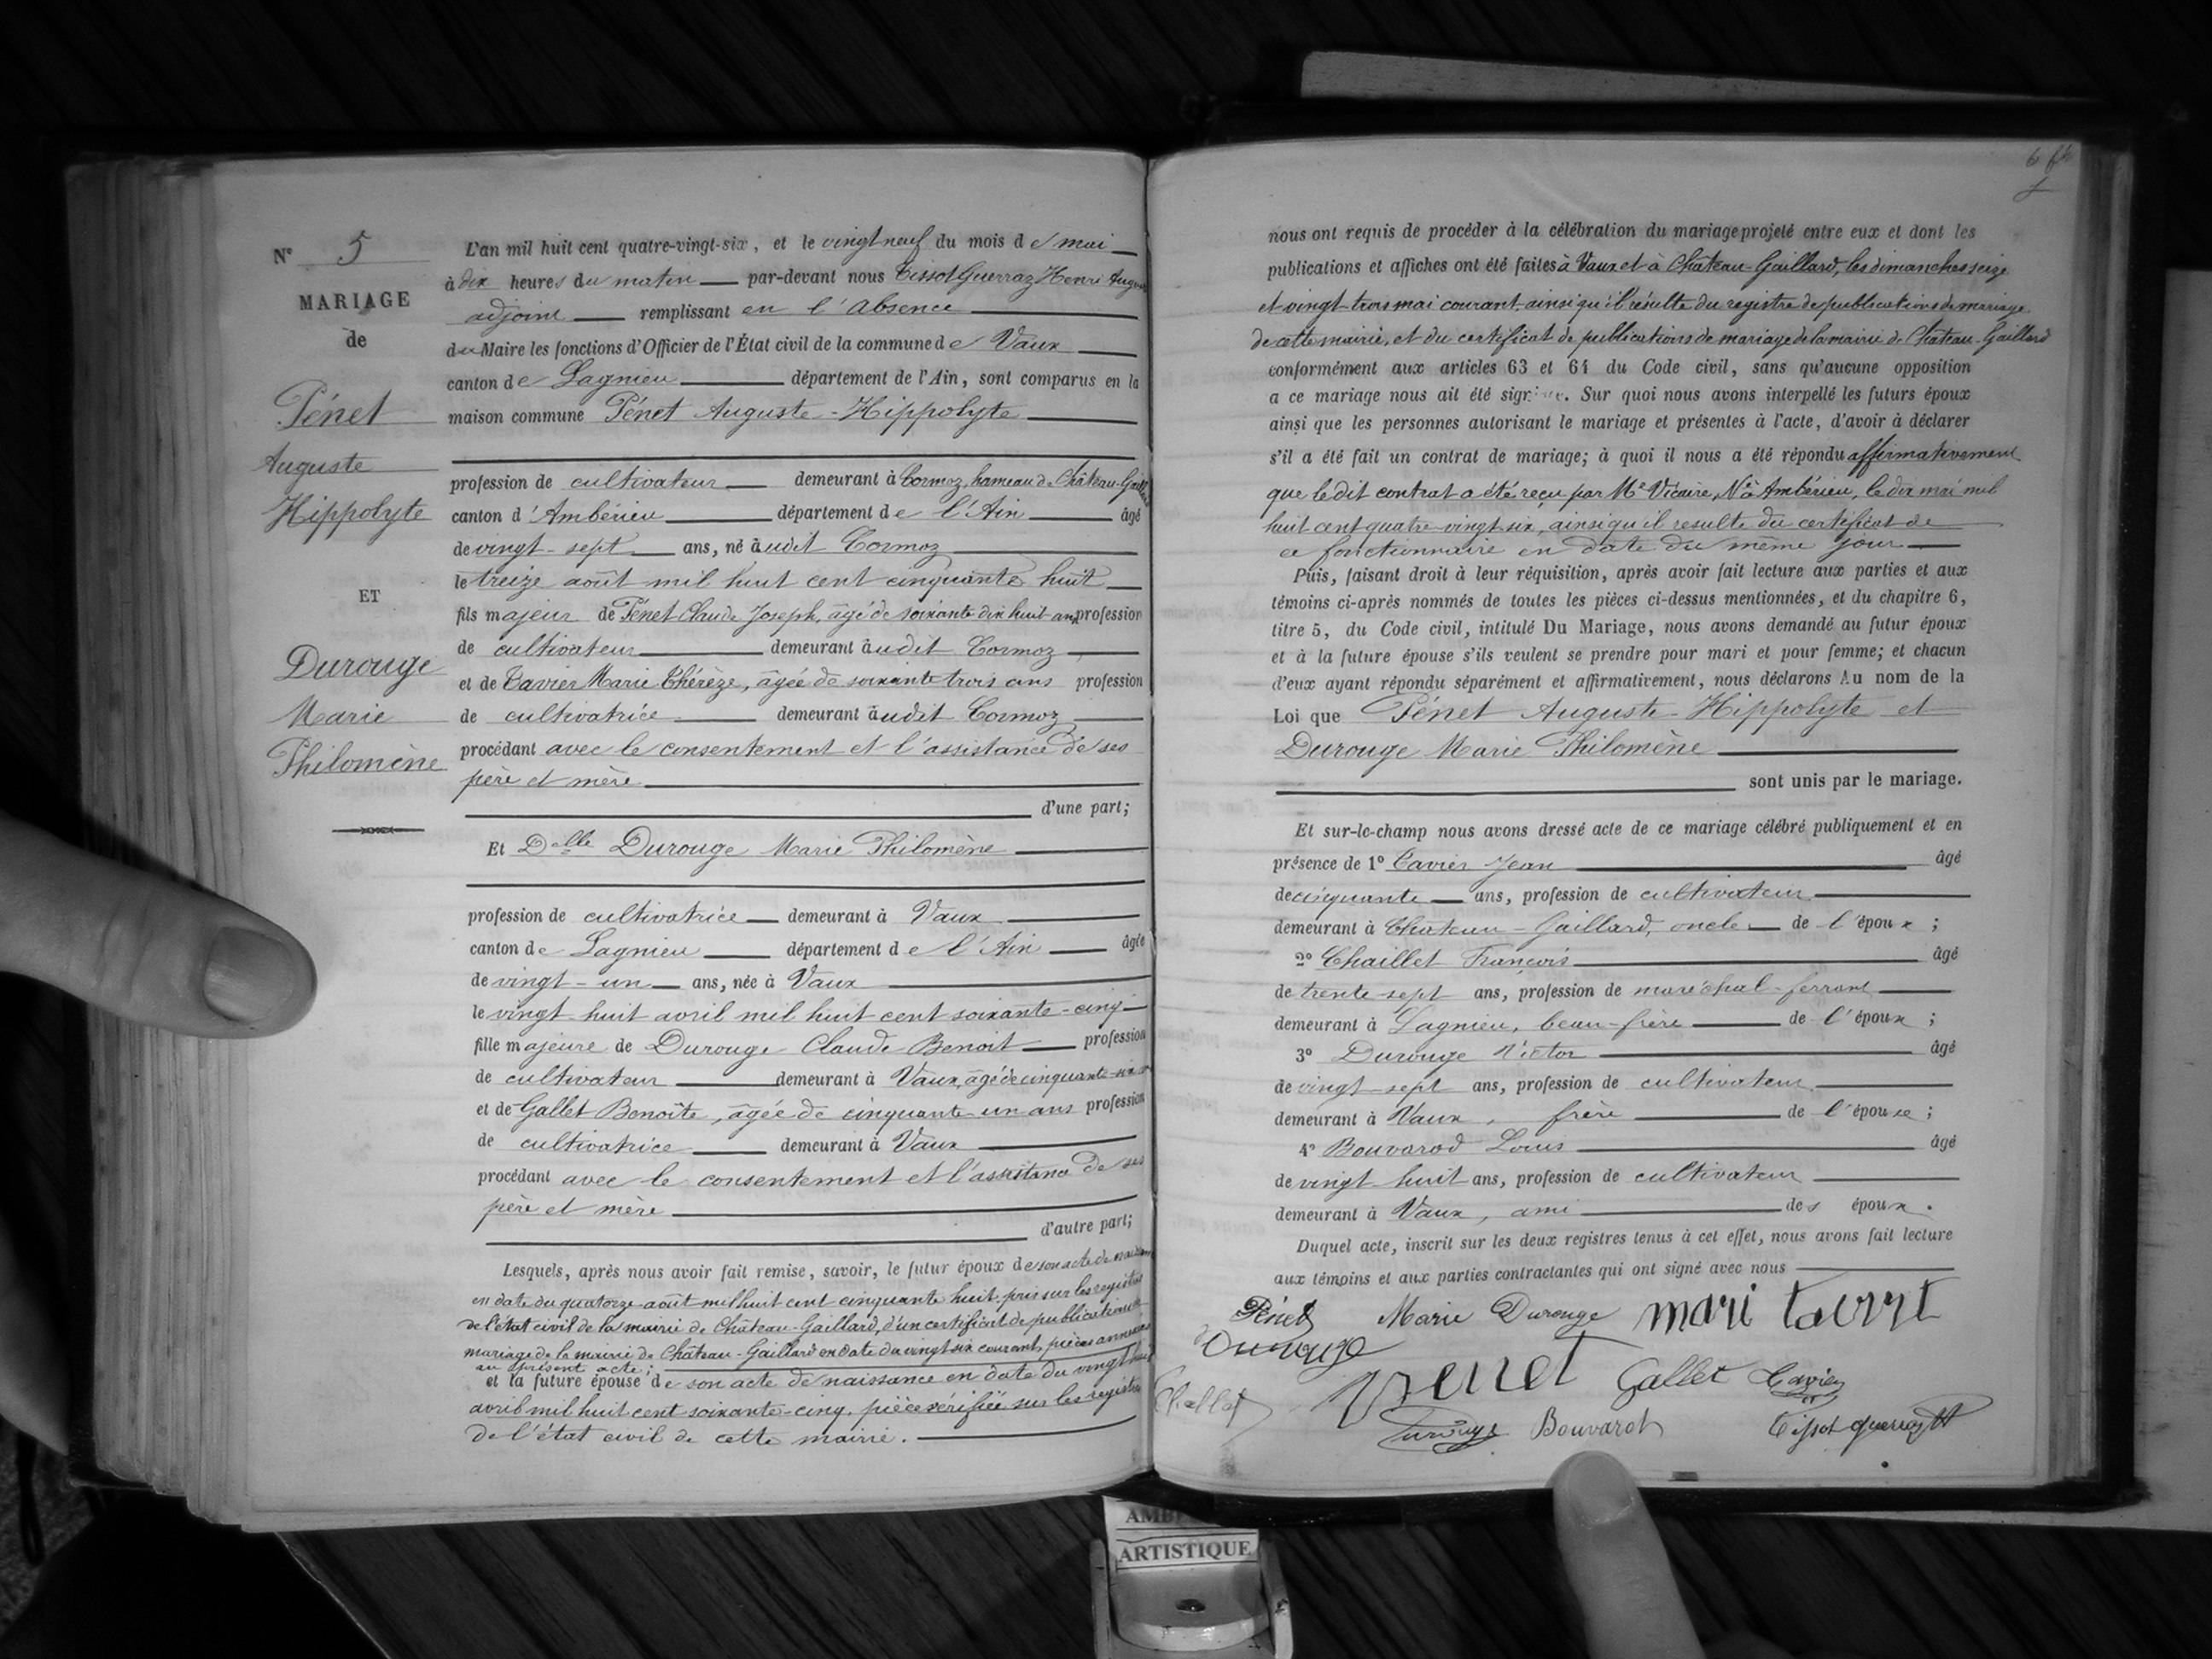 N° 5
MARIAGE
de
Pénet
Auguste
Hippolyte
ET
Durouge
Marie
Philomène
L'an mil huit cent quatre-vingt-six, et le vingt neuf du mois de mai
à dix heures du matin par-devant nous Tissot Guerraz Henri
adjoint remplissant en l'absence
du Maire les fonctions d'Officier de l'État civil de la commune de Vaux
canton de Lagnieu département de l'Ain, sont comparus en la
maison commune Pénet Auguste-Hippolyte
profession de cultivateur demeurant à Cormoz, hameau de Château-Gaillard
canton d'Ambérieu département de l'Ain âgé
de vingt-sept ans, né audit Cormoz
le treize août mil huit cent cinquante huit
fils majeur de Pénet Claude Joseph, âgé de soixante dix huit ans profession
de cultivateur demeurant audit Cormoz
et de Tavier Marie Thérèze, âgée de soixante trois ans profession
de cultivatrice demeurant audit Cormoz
procédant avec le consentement et l'assistance de ses
père et mère
d'une part;
Et Delle Durouge Marie Philomène
profession de cultivatrice demeurant à Vaux
canton de Lagnieu département de l'Ain âgée
de vingt-un ans, née à Vaux
le vingt huit avril mil huit cent soixante-cinq
fille majeure de Durouge Claude Benoit profession
de cultivateur demeurant à Vaux, âgé de cinquante-six
et de Gallet Benoîte, âgée de cinquante-un ans profession
de cultivatrice demeurant à Vaux
procédant avec le consentement et l'assistance de ses
père et mère
d'autre part;
Lesquels, après nous avoir fait remise, savoir, le futur époux de son acte de naissance
en date du quatorze août mil huit cent cinquante huit, pris sur les registres
de l'état civil de la mairie de Château-Gaillard, d'un certificat de publications de
mariage de la mairie de Château-Gaillard en date du vingt six courant, pièces annexées
au présent acte;
et la future épouse de son acte de naissance en date du vingt huit
avril mil huit cent soixante-cinq, pièce vérifiée sur les registres
de l'état civil de cette mairie.
nous ont requis de procéder à la célébration du mariage projeté entre eux et dont les
publications et affiches ont été faites à Vaux et à Château-Gaillard, les dimanches seize
et vingt-trois mai courant, ainsi qu'il résulte du registre de publications de mariage
de cette mairie, et du certificat de publications de mariage de la mairie de Château-Gaillard
conformément aux articles 63 et 64 du Code civil, sans qu'aucune opposition
a ce mariage nous ait été signifiée. Sur quoi nous avons interpellé les futurs époux
ainsi que les personnes autorisant le mariage et présentes à l'acte, d'avoir à déclarer
s'il a été fait un contrat de mariage; à quoi il nous a été répondu affirmativement
que le dit contrat a été reçu par Me Vicaire, Nre à Ambérieu, le dix mai mil
huit cent quatre-vingt-six, ainsi qu'il resulte du certificat de
ce fonctionnaire en date du même jour
Puis, faisant droit à leur réquisition, après avoir fait lecture aux parties et aux
témoins ci-après nommés de toutes les pièces ci-dessus mentionnées, et du chapitre 6,
titre 5, du Code civil, intitulé Du Mariage, nous avons demandé au futur époux
et à la future épouse s'ils veulent se prendre pour mari et pour femme; et chacun
d'eux ayant répondu séparément et affirmativement, nous déclarons Au nom de la
Loi que Pénet Auguste-Hippolyte et
Durouge Marie Philomène
sont unis par le mariage.
Et sur-le-champ nous avons dressé acte de ce mariage célébré publiquement et en
présence de 1° Tavier Jean âgé
de cinquante ans, profession de cultivateur
demeurant à Château-Gaillard, oncle de l'époux;
2° Chaillet François âgé
de trente-sept ans, profession de maréchal-ferrant
demeurant à Lagnieu, beau-frère de l'époux;
3° Durouge Victor âgé
de vingt-sept ans, profession de cultivateur
demeurant à Vaux, frère de l'épouse;
4° Bouvarod Louis âgé
de vingt huit ans, profession de cultivateur
demeurant à Vaux, ami des époux.
Duquel acte, inscrit sur les deux registres tenus à cet effet, nous avons fait lecture
aux témoins et aux parties contractantes qui ont signé avec nous
Pénet Marie Durouge mari
Durouge
Penet Gallet Tavier
Durouge Bouvarot Tissot Guerraz
ARTISTIQUE